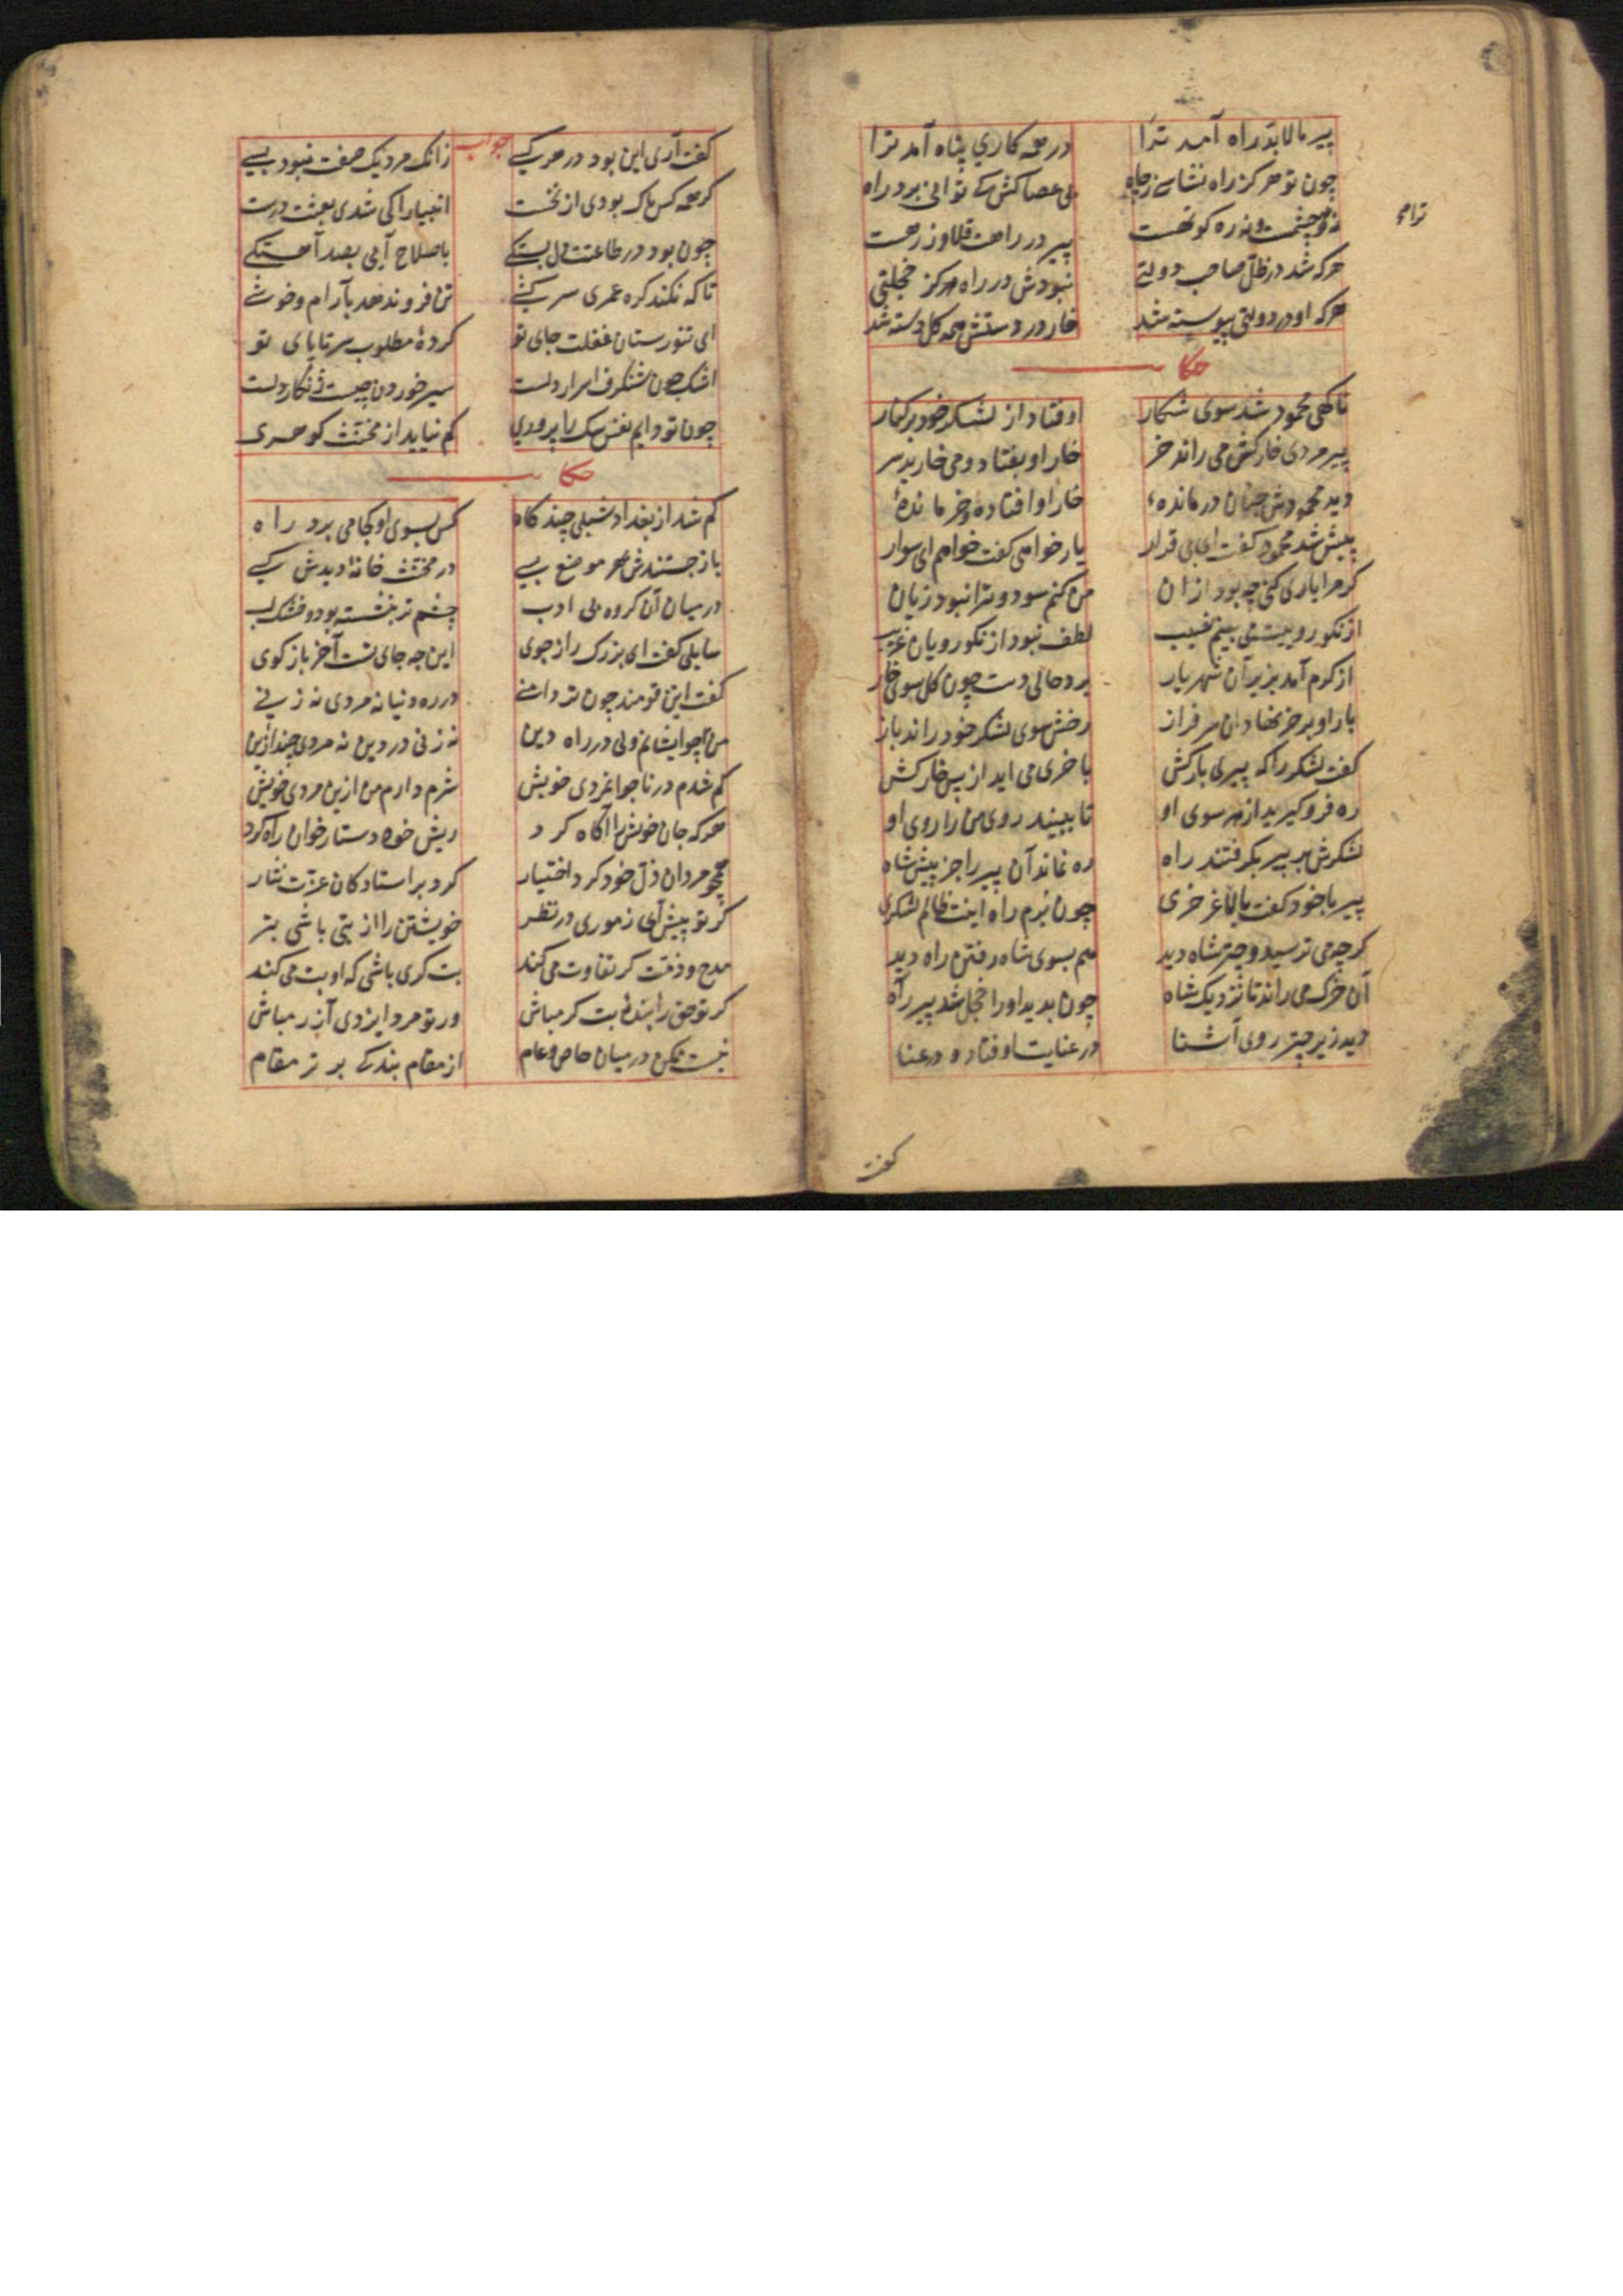 پیر ما لابد راه آمد ترا در همه کاری پناه آمد ترا
چون تو هرگز راه نشناسی ز چاه بی عصاکش کی توانی برد راه
نه ترا چشمست و نه ره کوتهست پیر در راهت قلاوز رهست
هرکه شد در ظل صاحب دولتی نبودش در راه هرگز خجلتی
هرکه او در دولتی پیوسته شد خار در دستش همه گل دسته شد
ترا چ
حکا
ناگهی محمود شد سوی شکار اوفتاد از لشکر خود بر کنار
پیر مردی خارکش می راند خر خار او بفتاد و می خارید سر
دید محمودش چنان درماندهٔ خار او افتاده و خر ماندهٔ
پیش شد محمود گفت ای بی قرار یار خواهی گفت خواهم ای سوار
گر مرا یاری کنی چه بود از آن من کنم سود و ترا نبود زیان
از نکو روییت می بینم نصیب لطف نبود از نکورویان غریب
از کرم آمد بزیر آن شهریار برد حالی دست چون گل سوی خار
بار او بر خر نهاد آن سرفراز رخش سوی لشکر خود راند باز
گفت لشکر را که پیری بارکش با خری می آید از پس خارکش
ره فرو گیرید از هر سوی او تا ببیند روی من را روی او
لشکرش بر پیر بگرفتند راه ره نماند آن پیر را جز پیش شاه
پیر با خود گفت با لاغر خری چون برم راه اینت ظالم لشکری
گرچه می ترسید و چتر شاه دید هم بسوی شاه رفتن راه دید
آن خرک می راند تا نزدیک شاه چون بدید او را خجل شد پیر راه
دید زیر چتر روی آشنا در عنایت اوفتاد و در عنا
گفت
گفت آری این بود در هر کسی جواب زانک مرد یک صفت نبود بسی
گر همه کس پاک بودی از نخست انبیا را کی شدی بعثت درست
چون بود در طاعتت دل بستگی با صلاح آیی بصد آهستگی
تا که نکند کره عمری سرکشی تن فرو ندهد بآرام و خوشی
ای تنورستان غفلت جای تو گردهٔ مطلوب سر تا پای تو
اشک چون شنگرف اسرار دلست سیر خوردن چیست زنگار دلست
چون تو دایم نفس سگ را پروری کم نیاید از مخنث گوهری
حکا
گم شد از بغداد شبلی چند گاه کس بسوی او کجا می برد راه
باز جستندش هر موضع بسی در مخنث خانهٔ دیدش کسی
در میان آن گروه بی ادب چشم تر بنشسته بود و خشک لب
سایلی گفت ای بزرگ راز جوی این چه جای تست آخر باز گوی
گفت این قومند چون تردامنی در ره دنیا نه مردی نه زنی
من چو ایشانم ولی در راه دین نه زنی در دین نه مردی چند ازین
گم شدم در ناجوانمردی خویش شرم دارم من ازین مردی خویش
هرکه جان خویش را آگاه کرد ریش خود دستار خوان راه کرد
همچو مردان ذل خود کرد اختیار کرد بر استادگان عزت نثار
گر تو پیش آی ز موری در نظر خویشتن را از بتی باشی بتر
مدح و ذمت گر تفاوت می کند بت گری باشی که او بت می کند
گر تو حق را بندهٔ بت گر مباش ور تو مرد ایزدی آزر مباش
نیست ممکن در میان خاص و عام از مقام بندگی برتر مقام